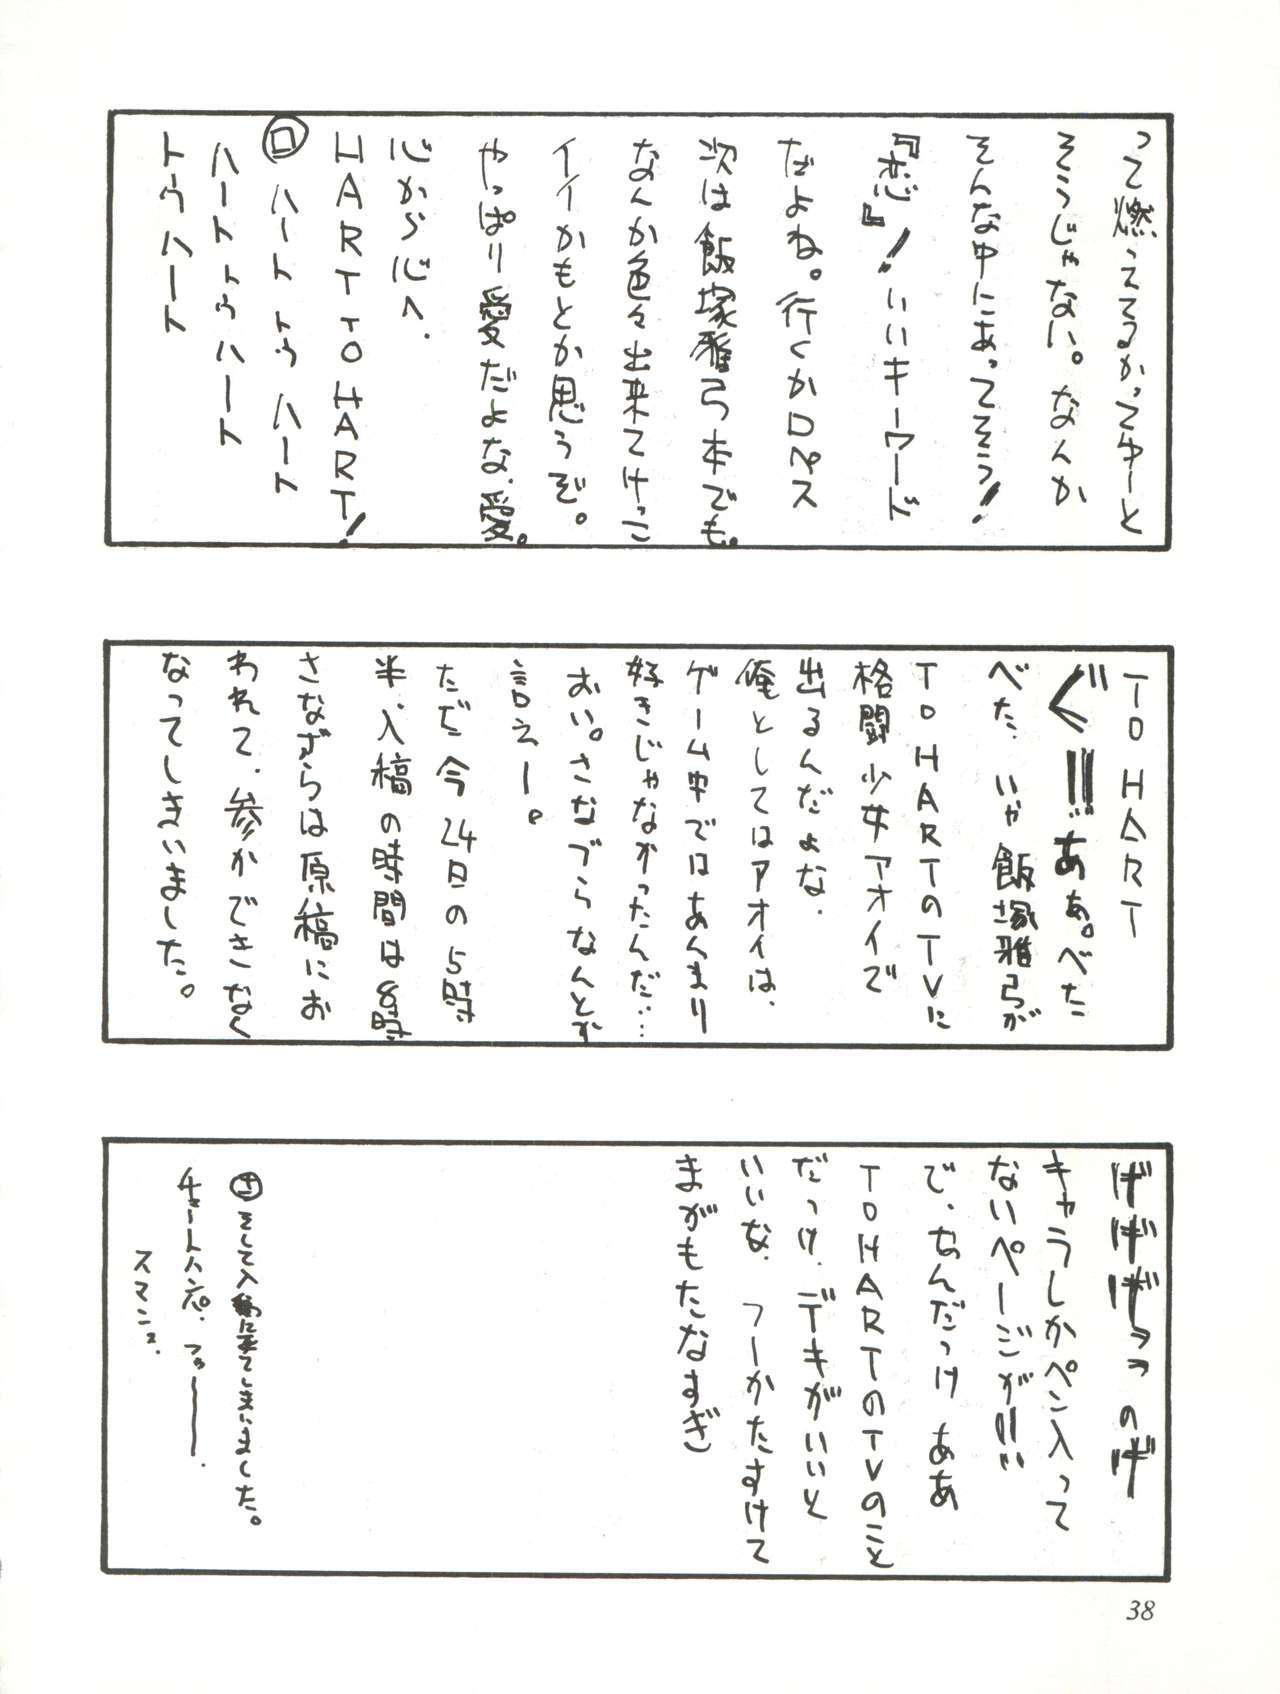 って燃えてるかってゆーと
そうじゃない。なんか
そんな中にあってそう!
『恋』!いいキーワード
だよね。行くかロペス
次は飯塚雅弓本でも。
なんか色々出来てけっこ
イイかもとか思うぞ。
やっぱり愛だよな、愛。
心から心へ.
HART TO HART!
ロ ハート トゥ ハート
ハート トゥ ハート
トゥ ハート
TO HART
ぐ!!!あぁ。べた
べた、いや飯塚雅弓が
TO HARTのTVに
格闘少女アオイで
出るんだよな.
俺としてはアオイは、
ゲーム中ではあんまり
好きじゃなかったんだ……
おい。さなづらなんとか
言えー。
ただ今24日の5時
半、入稿の時間は8時
さなずらは原稿にお
われて、参かできなく
なってしまいました。
げげげヲヲのげ
キャラしかペン入って
ないページが!!!
で、なんだっけ ああ
TO HARTのTVのこと
だっけ、デキがいいと
いいな、 フーかたすけて
まがもたなすぎ
さ そして入稿に来てしまいました。
スマン。
38